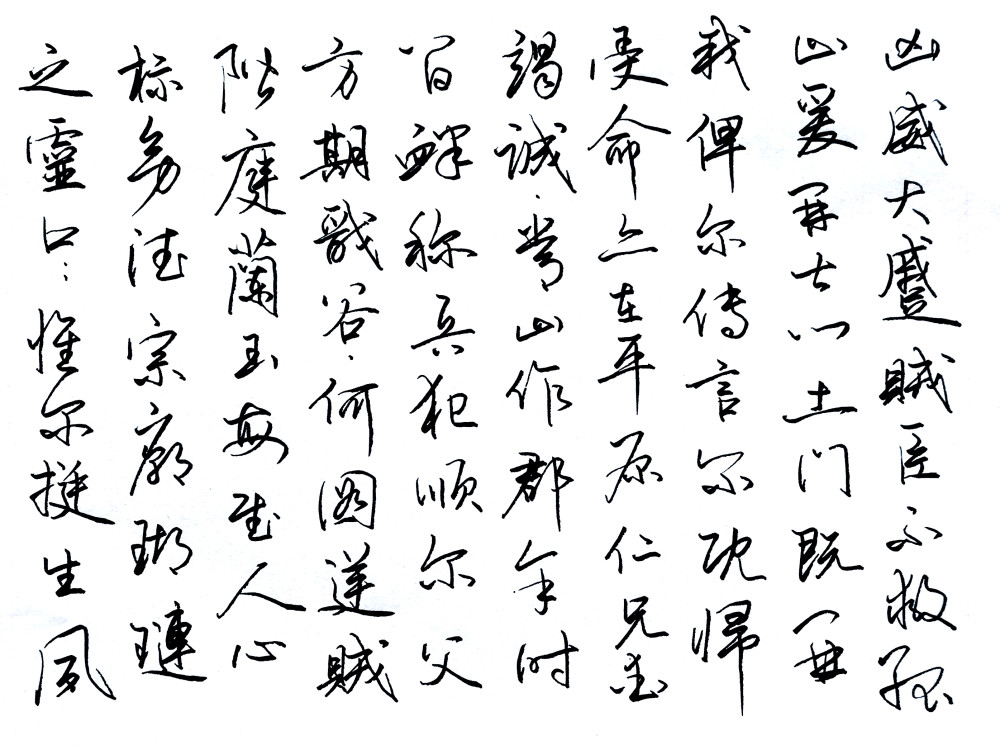 之靈曰：惟尔挺生夙
标㓜德宗廟瑚璉
階庭蘭玉每慰人心
方期戩谷何図逆贼
间衅称兵犯顺尔父
竭诚常山作郡余时
受命亦在平原仁兄爱
我俾尔传言尔既归
止爰开土门土门既开
凶威大蹙贼臣不救孤